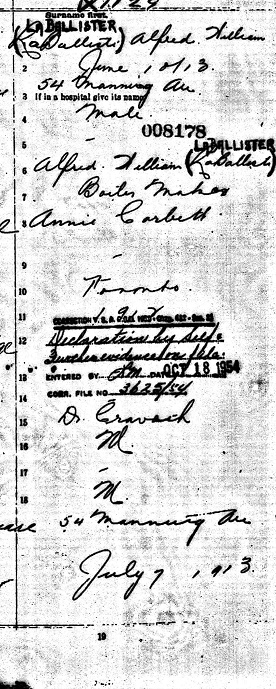 Surname first.
LaBALLISTER
(LaBallist) Alfred William
2 June 1 1913.
3 54 Manning Av.
If in a hospital give its name
4 Male
008178
5 LaBALLISTER
6 Alfred William (LaBallist)
7 Boiler Maker
8 Annie Corbett
9
10 Toronto.
11 CORRECTION
12 Declaration by self &
Further evidence on file.
13 ENTERED BY DATE OCT 18 1954
14 CORR. FILE NO. 3625/54
15 Dr.
16 M
17
18 M.
54 Manning Av
July 7 1913.
19